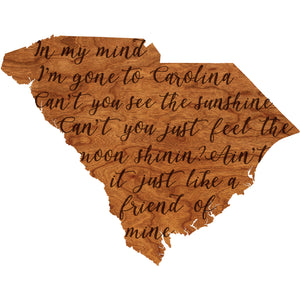 In my mind
I'm gone to Carolina
Can't you see the sunshine
Can't you just feel the
moon shinin? Ain't
it just like a
friend of
mine